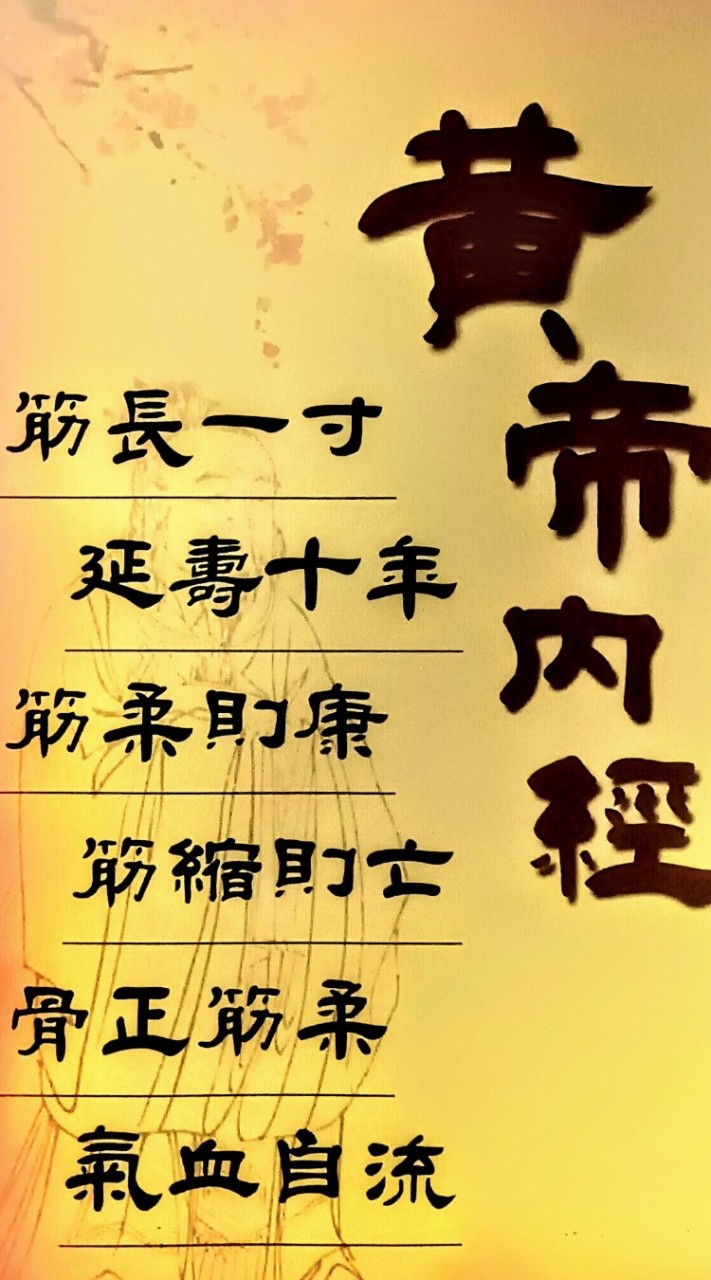 黃帝內經
筋長一寸
延壽十年
筋柔則康
筋縮則亡
骨正筋柔
氣血自流